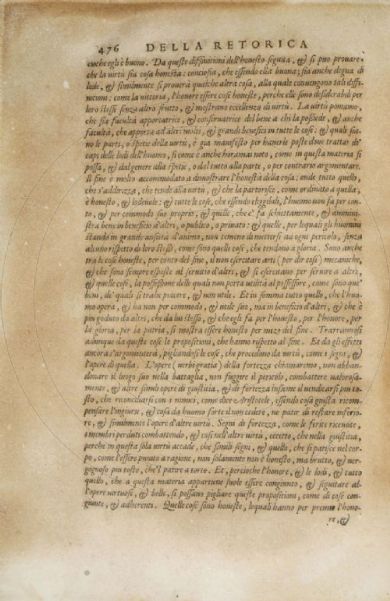 476 DELLA RETORICA
cioche egli è buono. Da queste diffinitioni dell'honesto seguita, &) si può prouare,
che la virtù sia cosa honesta: conciosia, che essendo ella buona; sia anche degna di
lode, &) similmente si prouerà qualche altra cosa, alla quale conuengono tali diffi-
nitioni: come la vittoria, l'honore essere cose honeste, perche elle sono desiderabili per
loro stesse senza altro frutto, &) mostrano eccellenza di virtù. La virtù poniamo,
che sia facultà apportatrice, &) conseruatrice del bene a chi la possiede, &) anche
facultà, che apporta ad altri molti, &) grandi beneficii in tutte le cose: &) quali sia-
no le parti, o spetie della virtù, è già manifesto per hauerle poste doue trattai de'
capi delle lodi dell'huomo, si come è anche
possa &) dal genere alla spetie, o dal tutto alla parte, o per contrario argomentare.
Il fine è molto accommodato a dimostrare l'honestà della cosa: onde tutto quello,
che s'addrizza, che tende alla virtù, &) che la partorisce, come ordinato a quella,
è honesto, &) lodeuole: &) tutte le cose, che essendo eleggibili, l'huomo non fa per con-
to, &) per commodo suo proprio, &) quelle, che e' fa schiettamente, &) amminis-
tra bene in beneficio d'altri, o publico, o priuato: &) quelle, per lequali gli huomini
stando in grandissima d'animo, non temono di mettersi ad ogni pericolo, senza
alcuno rispetto di loro stessi, come sono quelle cose, che rendono a gloria. Sono anche
tra le cose honeste, per conto del fine, il non esercitare arti (per dir così) mecaniche,
&) che sono sempre esposte al seruitio d'altri, &) si esercitano per seruire a altri,
&) quelle cose, la possessione delle quali non porta utilità al possessore, come sono que'
beni, de' quali si trahe piacere, &) non utile. Et in somma tutto quello, che l'huo-
mo opera, &) ha non per commodo, &) utile suo, ma in beneficio d'altri, &) che è
più goduto da altri, che da lui stesso, &) ch'egli fa per l'honesto, per l'honore, per
la gloria, per la patria, si mostra essere honesto per mezo del fine. Trarrannosi
adunque da queste cose le propositioni, che hanno rispetto al fine. Et da gli effetti
ancora s'argomenterà, pigliandosi le cose, che procedono da virtù, come i segni, &)
l'opere di quella. L'opere (verbi gratia) della fortezza chiamarmo, non abban-
donare il luogo suo nella battaglia, non fuggire il pericolo, combattere valorosa-
mente, &) altre simili opere di giustitia, &) di fortezza insieme il uendicarsi più to-
sto, che riconciliarsi con i nimici, come dice Aristotele, essendo cosa giusta ricom-
pensare l'ingiurie, &) cosa da huomo forte il non cedere, ne patir di restare inferio-
re, &) similmente l'opere d'altre virtù. Segni di fortezza, come le ferite riceuute,
i membri perduti combattendo, &) così nell'altre virtù, eccetto, che nella giustitia,
perche in questa sola virtù accade, che simili segni, &) quello, che si patisce nel cor-
po, come l'essere punito a ragione, non solamente non è honesto, ma brutto, &) uer-
gognoso più tosto, che'l patire a torto. Et, percioche l'honore, &) le lodi, &) tutto
quello, che a questa materia appartiene suole essere congiunto, &) seguitare al-
l'opere virtuose, &) belle, si possano pigliare queste propositioni, come di cose con-
giunte, &) adherenti. Quelle cose sono honeste, lequali hanno per premio l'hono-
re, &)